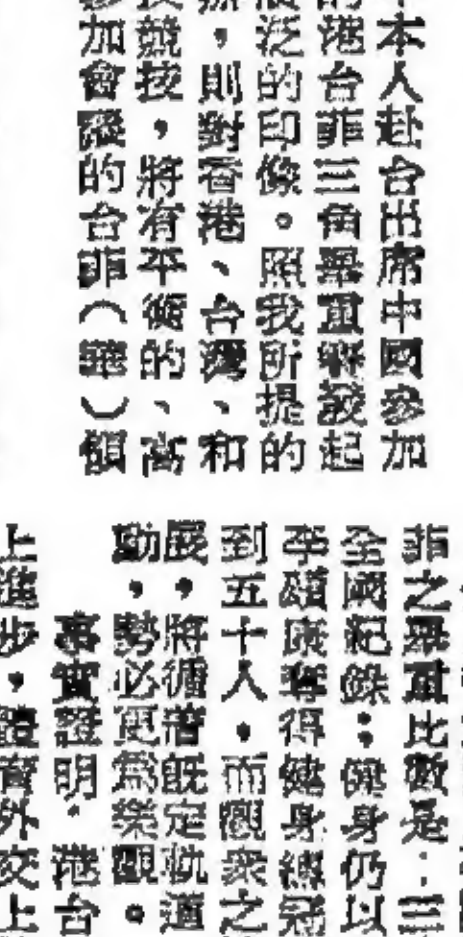 本人赴台出席中國參加
的港台菲三角舉重
泛的印像。照我所提的
,則對香港、台灣、和
技競技,將有平衡的、高
加會的台菲(華)領
菲之舉重比數是:三
全國紀錄:健身仍以
李頌康奪得健身總冠
到五十人,而觀衆之
展,將循着既定軌道
動,勢必更爲樂觀。
事實證明,港台
上進步,體育外交上